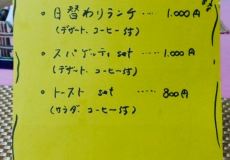 ○ 日替わりランチ ‥‥ 1.000円
(デザート、コーヒー付)
○ スパゲッティ set ‥‥ 1.000円
(デザート、コーヒー付)
○ トースト set ‥‥ 800円
(サラダ、コーヒー付)